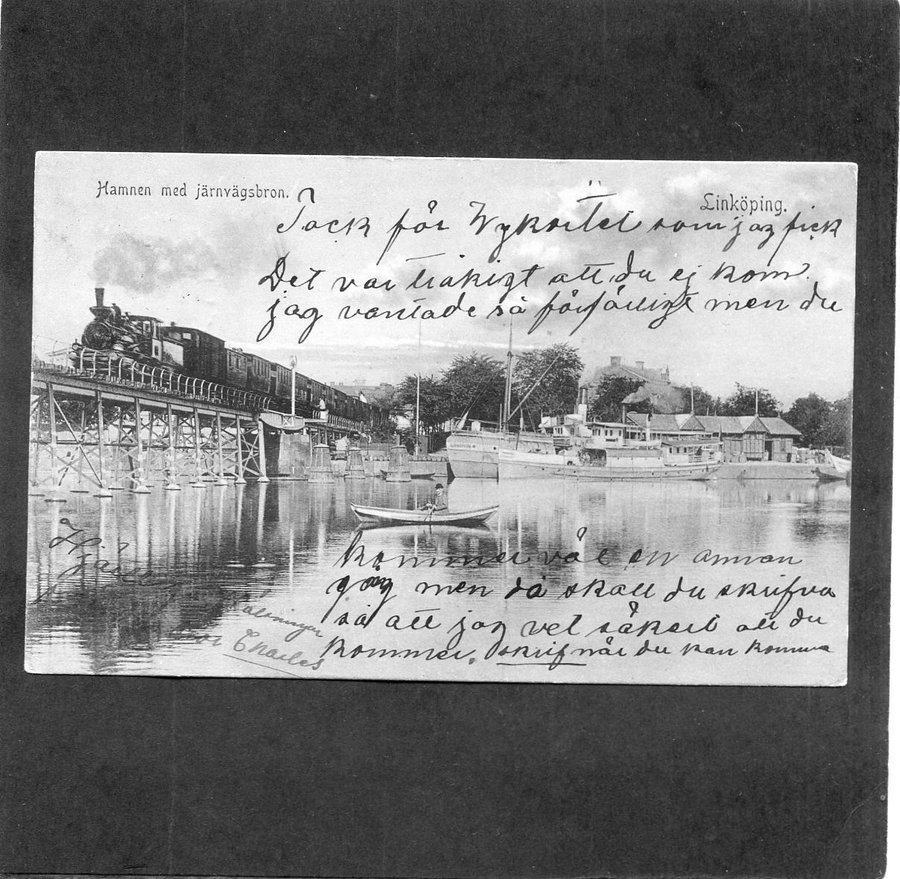 Hamnen med järnvägsbron.
Linköping.
Tack för Vykortet som jag fick
Det var tråkigt att du ej kom
jag vantade så förfärligt men du
kommer väl en annan
gång men då skall du skrifva
så att jag vet säkert att du
kommer, skrif når du kan komma
Charles